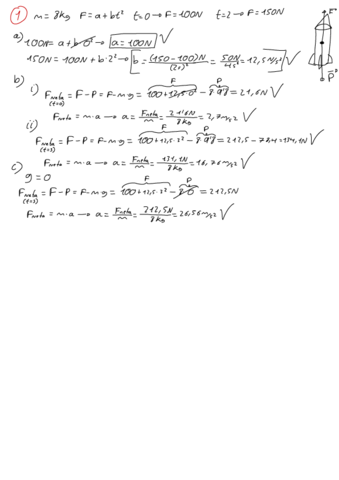 1 m = 8kg F = a + bt² t=0 → F = 100N t=2 → F = 150N
F
a) 100N = a + b·0 → a = 100N
150N = 100N + b·2² → b = (150-100)N / (2s)² = 50N / 4s² = 12,5 N/s²
P
b)
F P
i) Fneta = F - P = F - m·g = 100 + 12,5·0 - 8·9,8 = 21,6N
(t=0)
Fneta = m·a → a = Fneta/m = 21,6N/8kg = 2,7 m/s²
F P
ii) Fneta = F - P = F - m·g = 100 + 12,5·3² - 8·9,8 = 212,5 - 78,4 = 134,1N
(t=3)
Fneta = m·a → a = Fneta/m = 134,1N/8kg = 16,76 m/s²
c)
g = 0
F P
Fneta = F - P = F - m·g = 100 + 12,5·3² - 8·0 = 212,5N
(t=3)
Fneta = m·a → a = Fneta/m = 212,5N/8kg = 26,56 m/s²